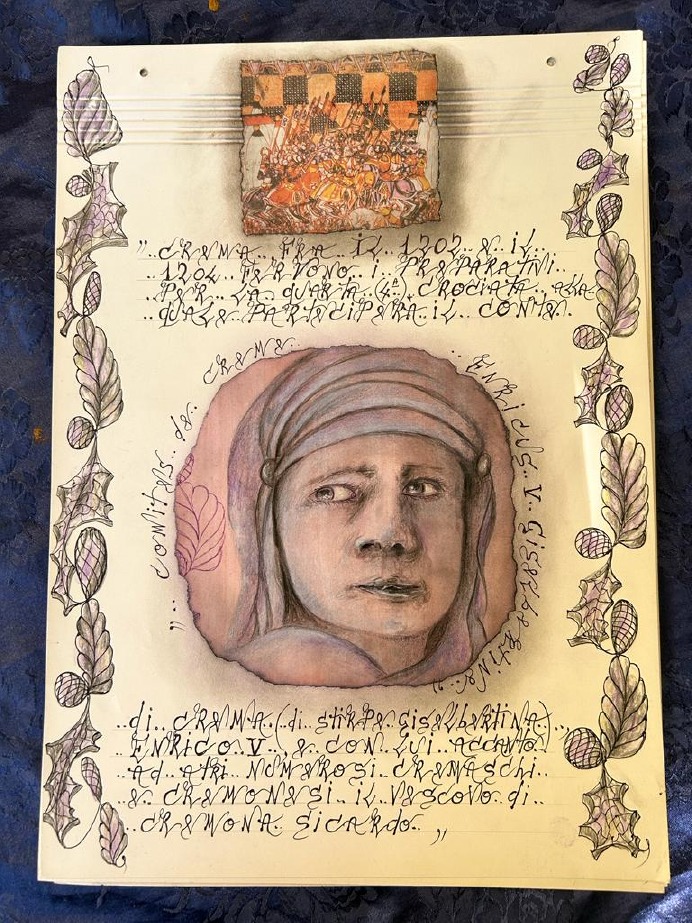 " .. CREMA .. FRA IL 1202 .. E IL ..
.. 1204 .. FERVONO .. i .. PREPARATIVI
.. PER .. LA .. QUARTA (4ª) .. CROCIATA .. ALLA ..
QUALE .. PARTECIPERA .. IL .. CONTE ..
" .. COMITES .. de .. CREME ..
.. ENRICUS .. V .. GISELBERTINE .. "
.. di .. CREMA .. (di .. STIRPE .. GISELBERTINA) ..
.. ENRICO .. V .. E .. CON .. LUI .. ACCANTO
.. AD .. ATRI .. NUMEROSI .. CREMASCHI ..
.. E .. CREMONESI .. IL .. VESCOVO .. di ..
.. CREMONA .. SICARDO .. "